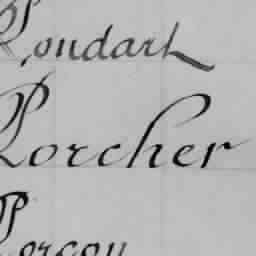 Pondart
Porcher
Porcon